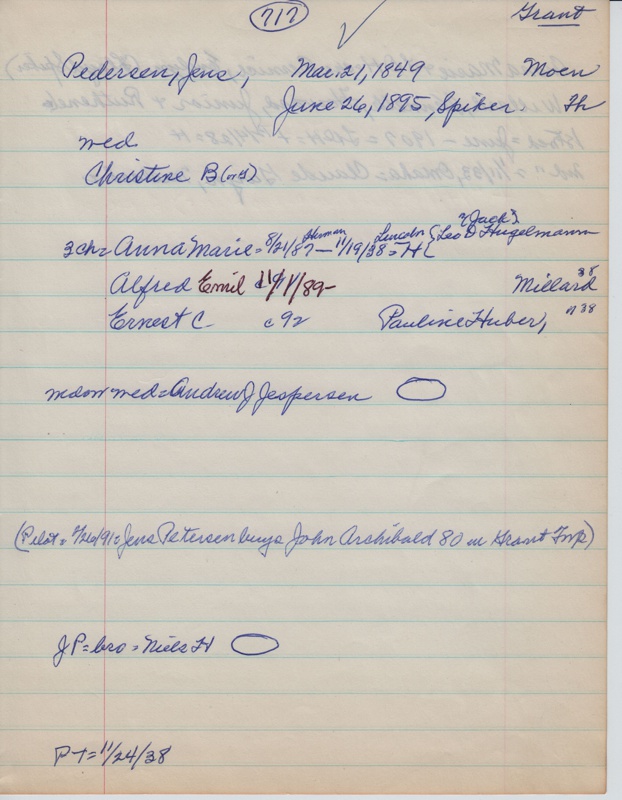 717
Grant
Pedersen, Jens, Mar. 21, 1849 Moen
June 26, 1895, Spiker. Th
med
Christine B
"Jack"
3 ch = Anna Marie = 8/21/87 Herman — 11/19/38 Lincoln = H (Leo D Hugelmann
Alfred Emil 11/11/89 - Millard 38
Ernest C c 92 Pauline Huber, n 38
widow med = Andrew J Jespersen
(Pilot = 2/26/91 = Jens Petersen buys John Archibald 80 in Grant Twp)
JP = bro = Niels H
PT = 11/24/38